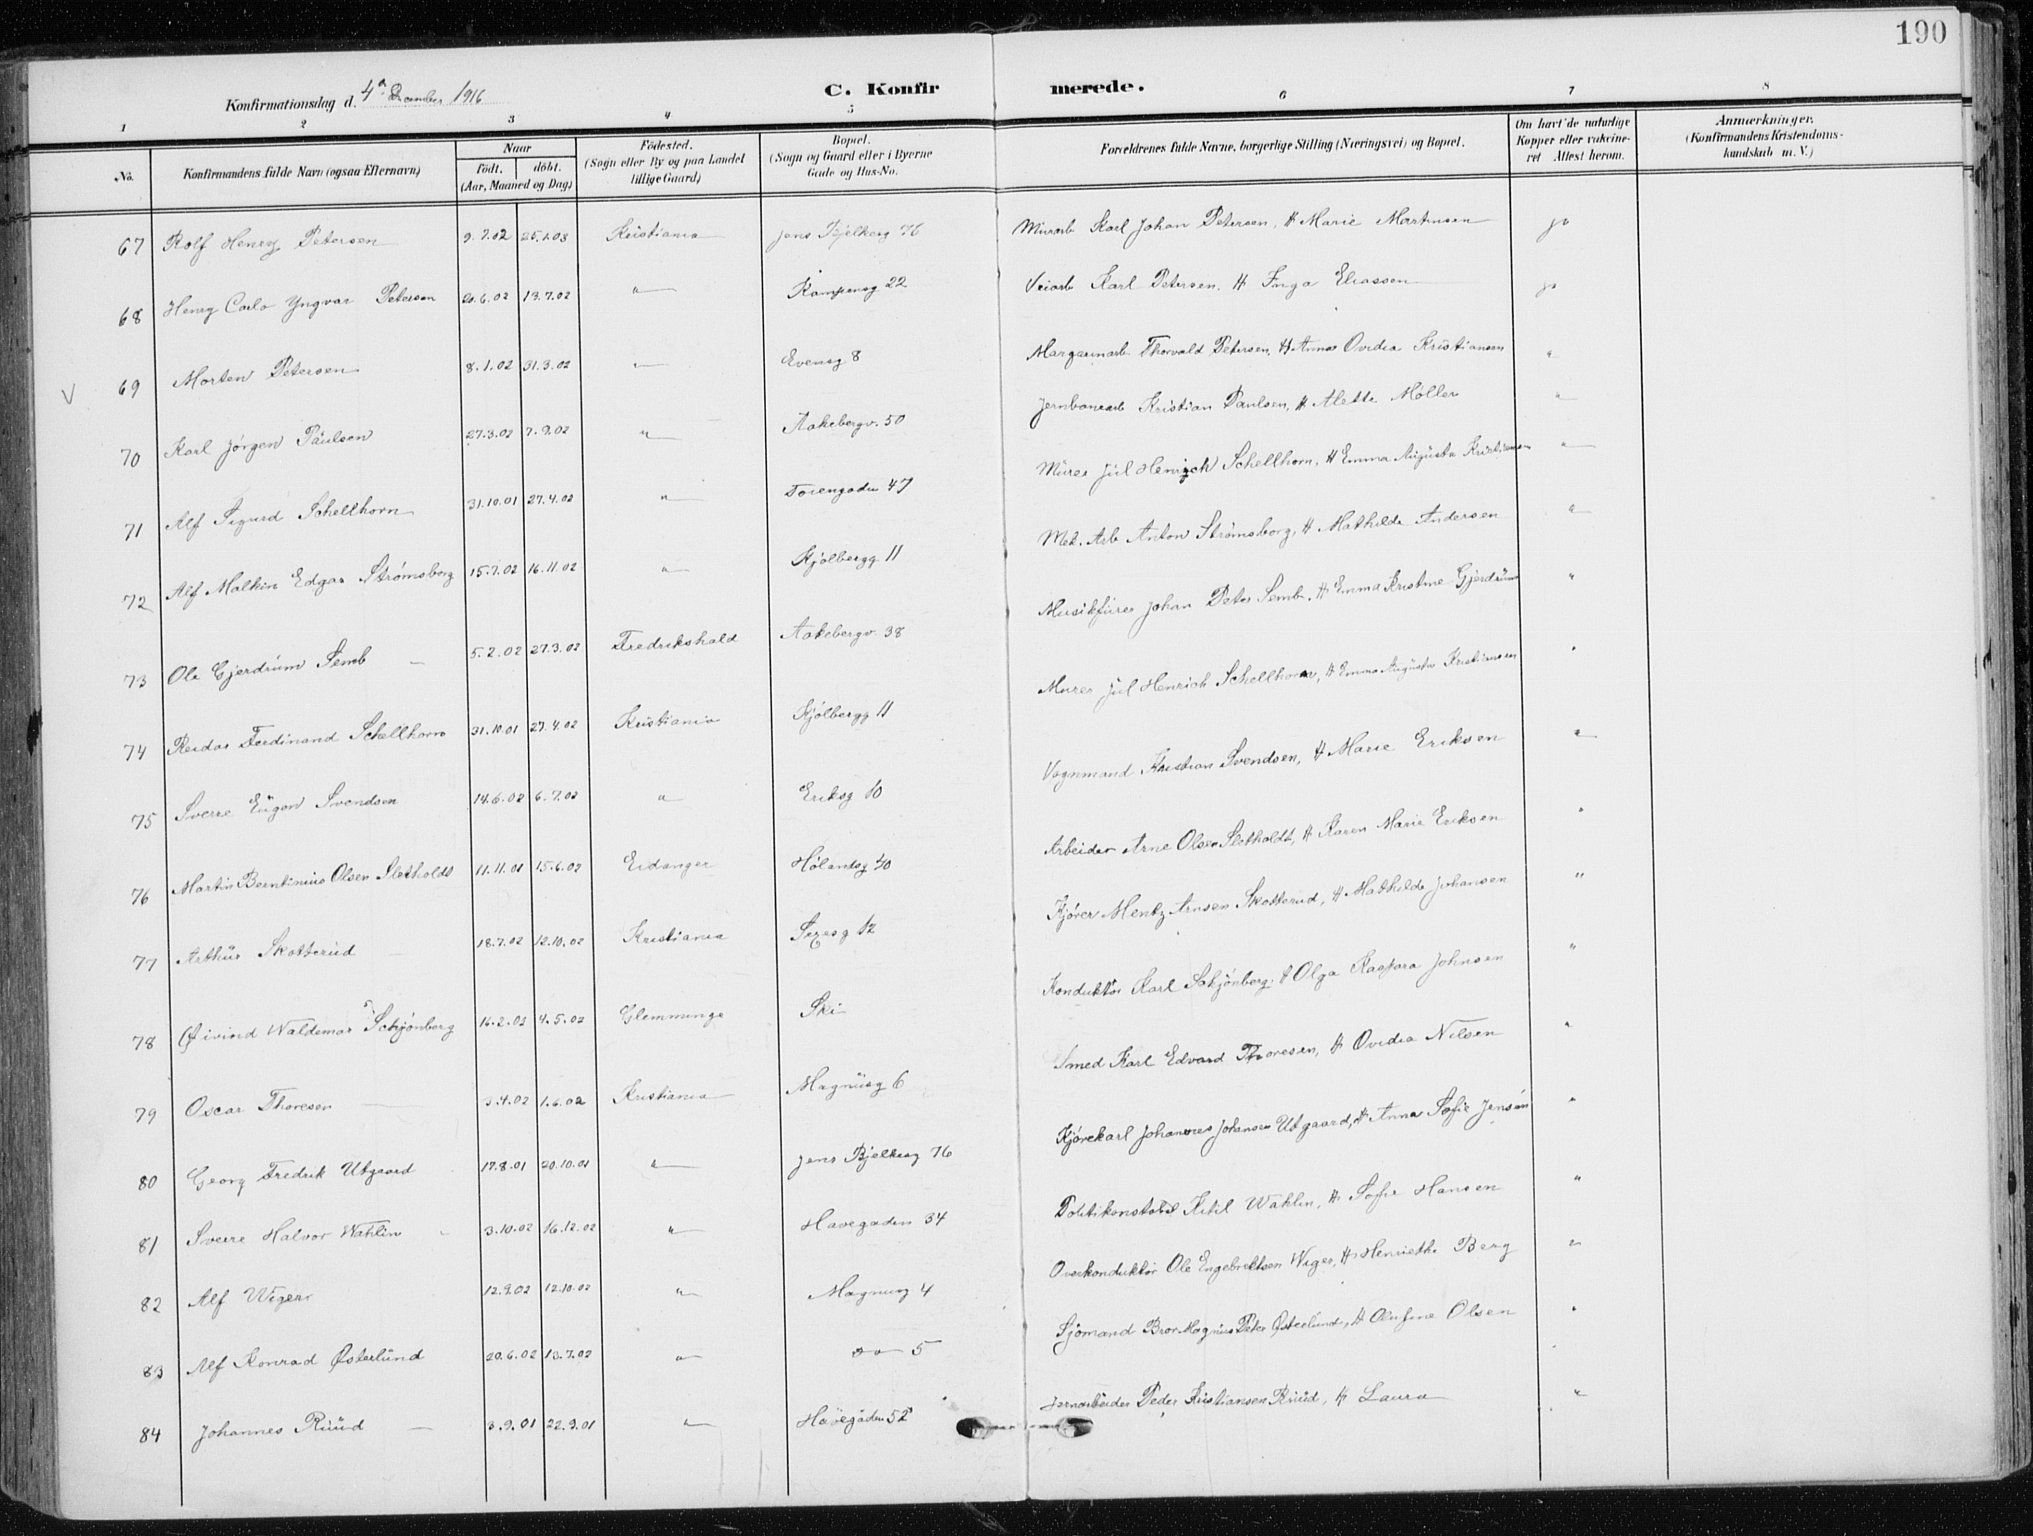 190
Konfirmationsdag d. 4de December 1916
C. Konfirmerede.
1 2 3 4 5 6 7 8
No. Konfirmandens fulde Navn (ogsaa Efternavn) Naar født. døbt. (Aar, Maaned og Dag) Fødested. (Sogn eller By og paa Landet tillige Gaard) Bopæl. (Sogn og Gaard eller i Byerne Gade og Hus-No. Forældrenes fulde Navne, borgerlige Stilling (Næringsvei) og Bopæl. Om havt de naturlige Kopper eller vaccineret Attest herom. Anmærkninger. (Konfirmandens Kristendomskundskab m. V.)
67 Rolf Henry Petersen 9.7.02 25.1.03 Kristiania Jens Bjelkesg 76 Murarb Karl Johan Petersen, H Marie Martinsen ja
68 Henry Carlo Yngvar Petersen 20.6.02 13.7.02 " Kampensg 22 Veiarb Karl Petersen. H Inga Eliassen ja
69 Morten Petersen 8.1.02 31.3.02 " Evensg 8 Margarinarb Thorvald Petersen, H Anna Ovidia Kristiansen "
V
70 Karl Jörgen Paulsen 27.3.02 7.9.02 " Aakebergv. 50 Jernbanearb Kristian Paulsen, H Alette Möller "
71 Alf Sigurd Schellhorn 31.10.01 27.4.02 " Torengaden 47 Murer Jul Henrich Schellhorn, H Emma Augusta Kristiansen "
72 Alf Malkin Edgar Strømsborg 15.7.02 16.11.02 " Kjölbergg 11 Mek. Arb Anton Strømsborg, H Mathilde Andersen "
73 Ole Gjerdrum Semb 5.2.02 27.3.02 Fredrikshald Aakebergv. 38 Musikfürer Johan Peter Semb, H Emma Kristine Gjerdrum "
74 Reidar Ferdinand Schellhorn 31.10.01 27.4.02 Kristiania Kjölbergg 11 Murer Jul Henrich Schellhorn, H Emma Augusta Kristiansen "
75 Sverre Eugen Svendsen 14.6.02 6.7.02 " Eriksg 10 Vognmand Kristian Svendsen, H Marie Eriksen "
76 Martin Berntinius Olsen Sletholdt 11.11.01 15.6.02 Eidanger Hølandsg 40 Arbeider Arne Olsen Sletholdt, H Karen Marie Eriksen "
77 Arthur Skotterud 18.7.02 12.10.02 Kristiania Sexesg 12 Kjörer Mentz Arnsen Skotterud, H Mathilde Johansen "
78 Øivind Waldemar Schjönberg 16.2.02 4.5.02 Glemminge Ski Konduktör Karl Schjönberg, H Olga Kaspara Johnsen "
79 Oscar Thoresen 3.4.02 1.6.02 Kristiania Magnusg 6 Smed Karl Edvard Thoresen, H Ovidia Nilsen "
80 Georg Fredrik Utgaard 17.8.01 20.10.01 " Jens Bjelkesg 76 Kjörekarl Johannes Johansen Utgaard, H Anna Sofie Jensen "
81 Sverre Halvor Wahlin 3.10.02 16.12.02 " Havegaden 34 Politikonstabel Ketil Wahlin, H Sofie Hansen "
82 Alf Wiger 12.9.02 12.10.02 " Magnusg 4 Overkonduktör Ole Engebretsen Wiger, H Henriette Berg "
83 Alf Konrad Østerlund 20.6.02 13.7.02 " " 5 Sjömand Bror Magnus Peter Østerlund, H Olufine Olsen "
84 Johannes Ruud 3.9.01 22.9.01 " Havegaden 52 Jernarbeider Peder Kristiansen Ruud, H Laura "